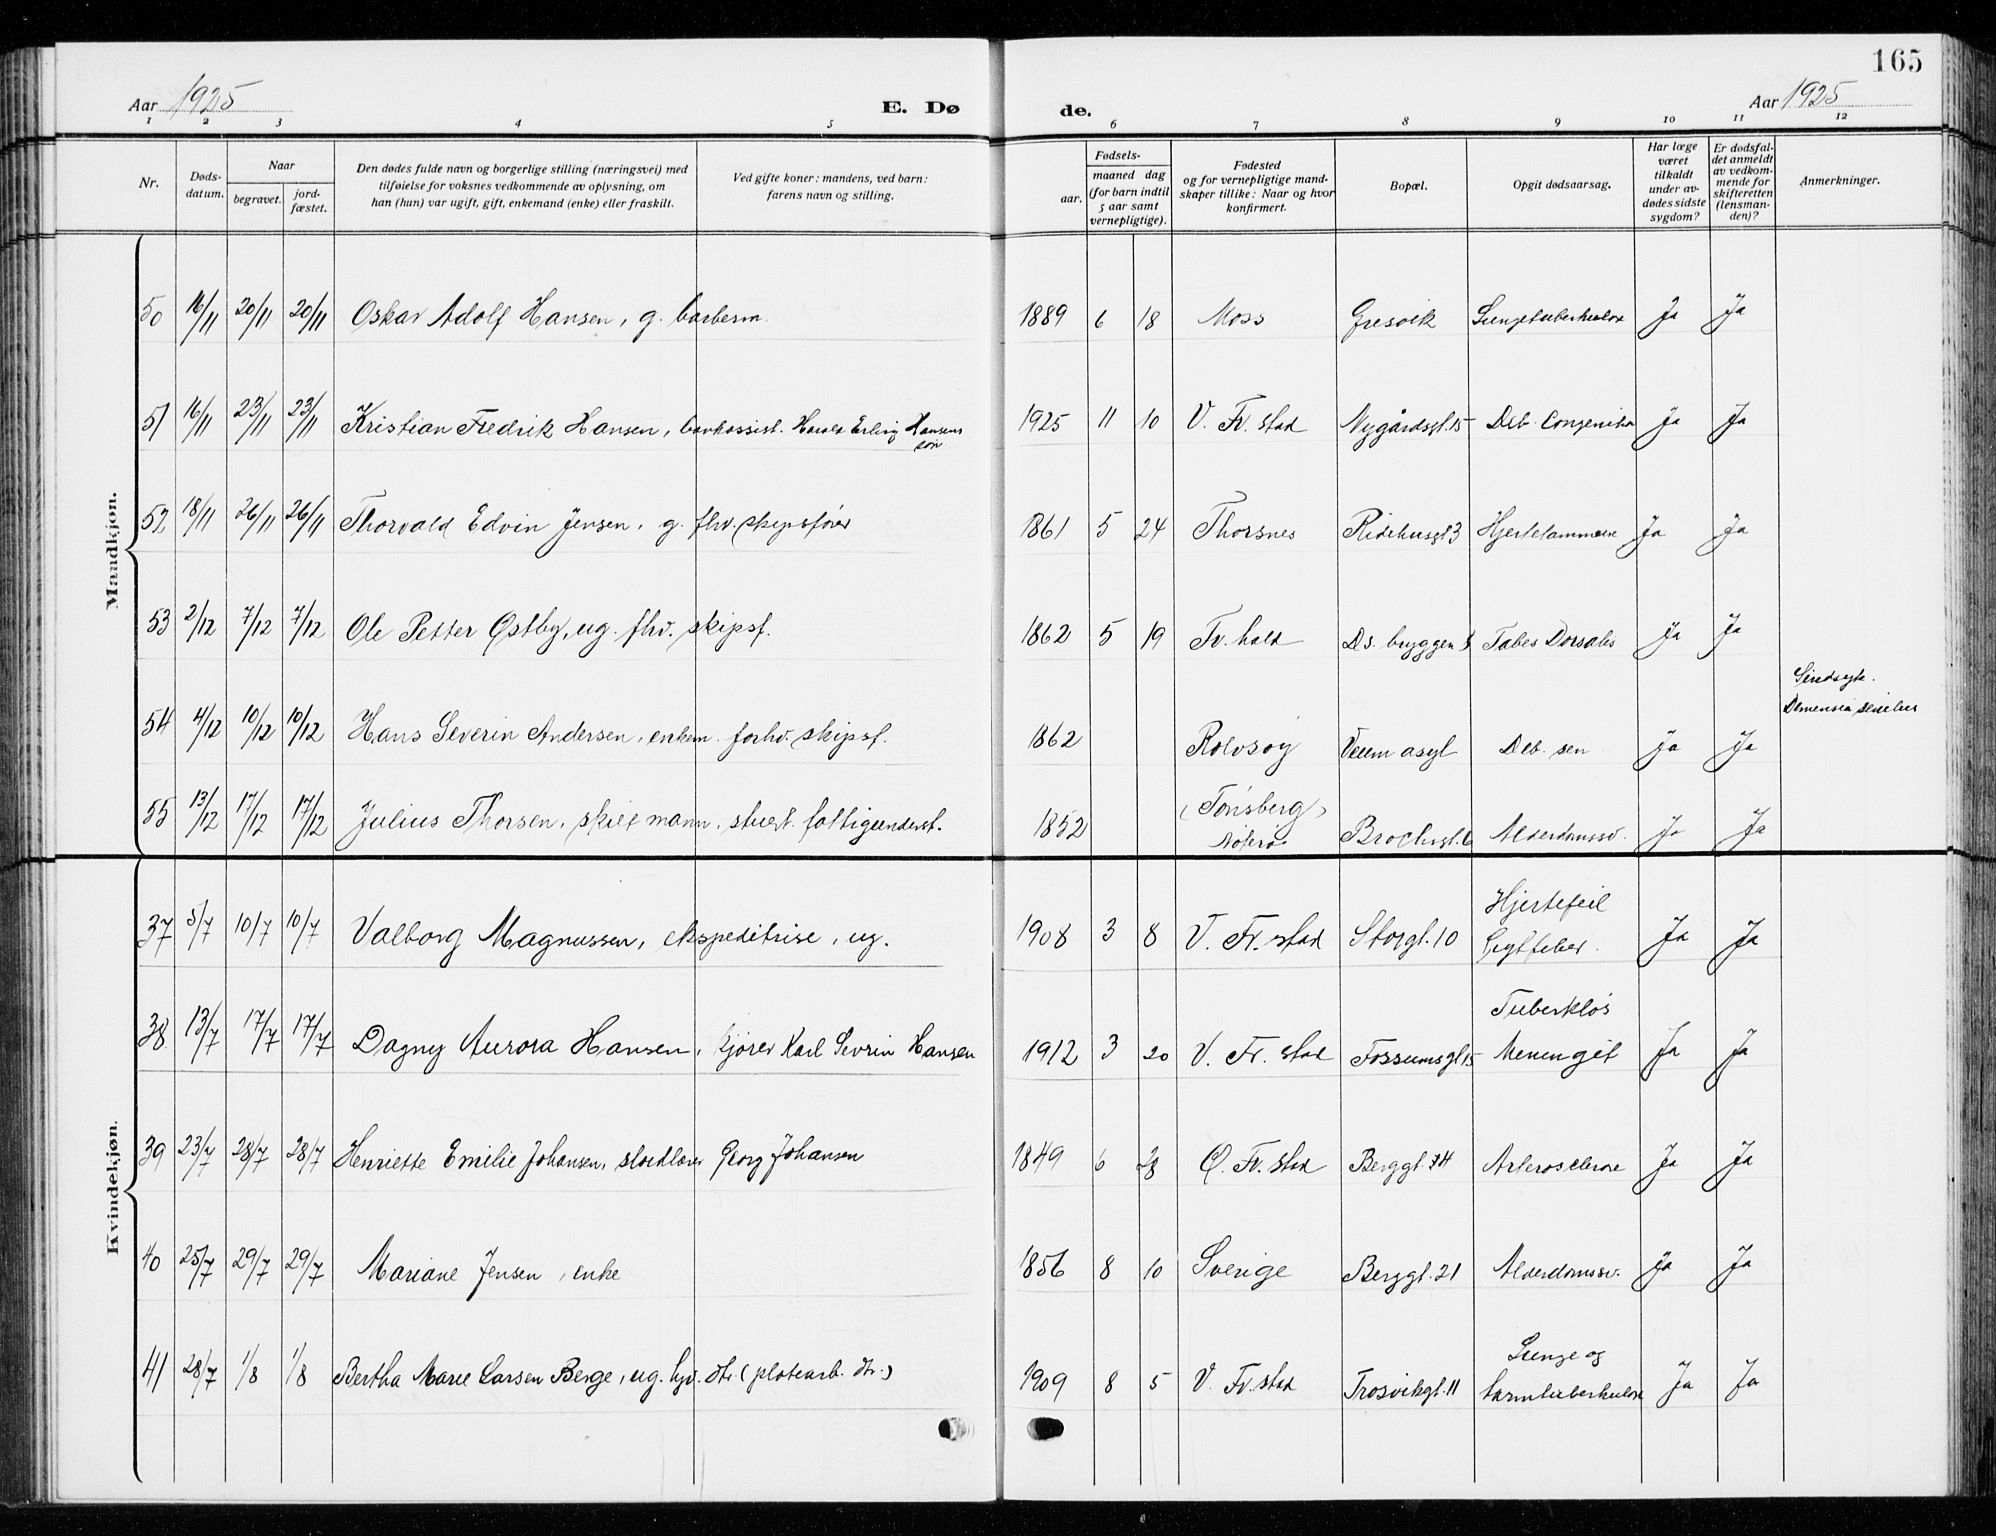 165
Aar 1925 E. Dø de. Aar 1925
1 2 3 4 5 6 7 8 9 10 11 12
Nr. | Døds-datum. | Naar begravet. | jord-fæstet. | Den dødes fulde navn og borgerlige stilling (næringsvei) med tilføielse for voksnes vedkommende av oplysning, om han (hun) var ugift, gift, enkemand (enke) eller fraskilt. | Ved gifte koner: mandens, ved barn: farens navn og stilling. | Fødsels- aar. | maaned dag (for barn indtil 5 aar samt vernepligtige). | Fødested og for vernepligtige mand-skaper tillike: Naar og hvor konfirmert. | Bopæl. | Opgit dødsaarsag. | Har læge været tilkaldt under av-dødes sidste sygdom? | Er dødsfal-det anmeldt av vedkom-mende for skifteretten (lensman-den)? | Anmerkninger.
Mandkjøn.
50 16/11 20/11 20/11 Oskar Adolf Hansen, g. barberm. 1889 6 18 Moss Gresvik Lungetuberkulose Ja Ja
51 16/11 23/11 23/11 Kristian Fredrik Hansen, bankassist. Harald Erling Hansens søn 1925 11 10 V. Fr. stad Nygårdsgt. 15 Deb. Congenita Ja Ja
52 18/11 26/11 26/11 Thorvald Edvin Jensen, g. fhv. skipsfører 1861 5 24 Thorsnes Ridehusgt 3 Hjertelammelse Ja Ja
53 2/12 7/12 7/12 Ole Petter Østby, ug. fhv. skipsf. 1862 5 19 Fr. hald D.s. bryggen 8 Tabes Dorsalis Ja Ja
54 4/12 10/12 10/12 Hans Severin Andersen, enkem. forhv. skipsf. 1862 Rolvsøy Veum asyl Deb. sen Ja Ja Sindsyk. Demensia senilis
55 13/12 17/12 17/12 Julius Thorsen, skilt mann, stuert. fattigunderst. 1852 (Tønsberg) Nøterø Brochsgt. 6 Alderdomssv. Ja Ja
Kvindekjøn.
37 5/7 10/7 10/7 Valborg Magnussen, ekspeditrise, ug. 1908 3 8 V. Fr. stad Storgt. 10 Hjertefeil Gigtfeber. Ja Ja
38. 13/7 17/7 17/7 Dagny Aurora Hansen, kjører Karl Sevrin Hansen 1912 3 20 V. Fr. stad Fossumsgt 15 Tuberkløs Meningit Ja Ja
39 23/7 28/7 28/7 Henriette Emilie Johansen, Georg Johansen 1849 6 28 Ø. Fr. stad Berggt. 74 Arterosclerose Ja Ja
40 25/7 29/7 29/7 Mariane Jensen, enke 1856 8 10 Sverige Berggt. 21 Alderdomssv. Ja Ja
41 28/7 1/8 1/8 Bertha Marie Larsen Berge, ug. hjv. dtr. (platearb. dtr.) 1909 8 5 V. Fr. stad Trosvikgt. 11 Lunge og tarmtuberkulose Ja Ja